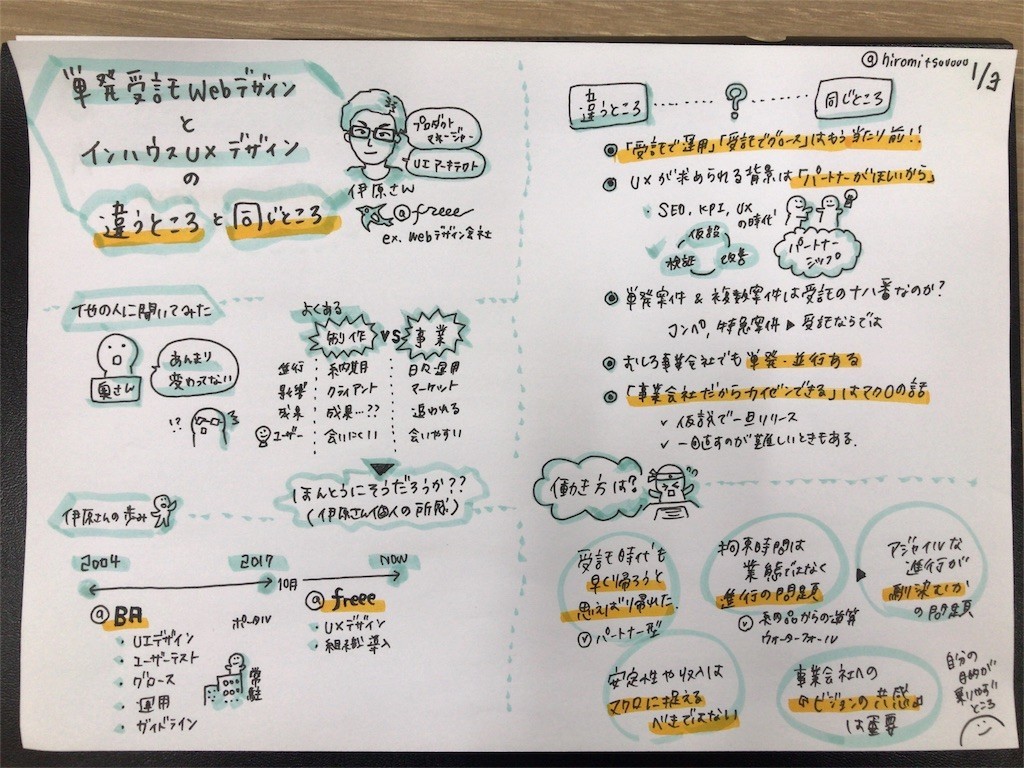 単発受託Webデザイン
と
インハウスUXデザイン
の
違うところと同じところ
プロダクト
マネージャー
UIアーキテクト
伊原さん
@freee
ex. Webデザイン会社
他の人に聞いてみた
奥さん
あんまり
変わってない
!?
よくある
制作 VS 事業
進行 納期 日々運用
影響 クライアント マーケット
成果 成果…?? 追われる
ユーザー 会いにくい 会いやすい
ほんとうにそうだろうか??
(伊原さん個人の所感)
伊原さんの歩み
2004 2017 10月 NOW
@BA
・UIデザイン
・ユーザーテスト
・グロース
・運用
・ガイドライン
ポータル
常駐
@freee
・UXデザイン
・組織導入
@hiromitsuuuuu
1/3
違うところ ……?…… 同じところ
「受託で運用」「受託でグロース」はもう当たり前!!
UXが求められる背景は「パートナーがほしいから」
・SEO, KPI, UX
の時代
仮設
検証 改善
パートナー
シップ
単発案件 & 複数案件は受託の十八番なのか?
コンペ, 特急案件▶受託ならでは
むしろ事業会社でも単発・並行ある
「事業会社だからカイゼンできる」はマクロの話
✓ 仮説で一旦リリース
✓ 一回直すのが難しいときもある.
働き方は?
受託時代も
早く帰ろうと
思えばり帰れた.
✓ パートナー型
拘束時間は
業態ではなく
進行の問題
✓ 納品からの逆算
ウォーターフォール
▶
アジャイルな
進行が
馴染むか
の問題
安定性や収入は
マクロに捉える
べきではない
事業会社への
『ビジョンの共感』
は重要
自分の
目的が
乗りやすい
ところ